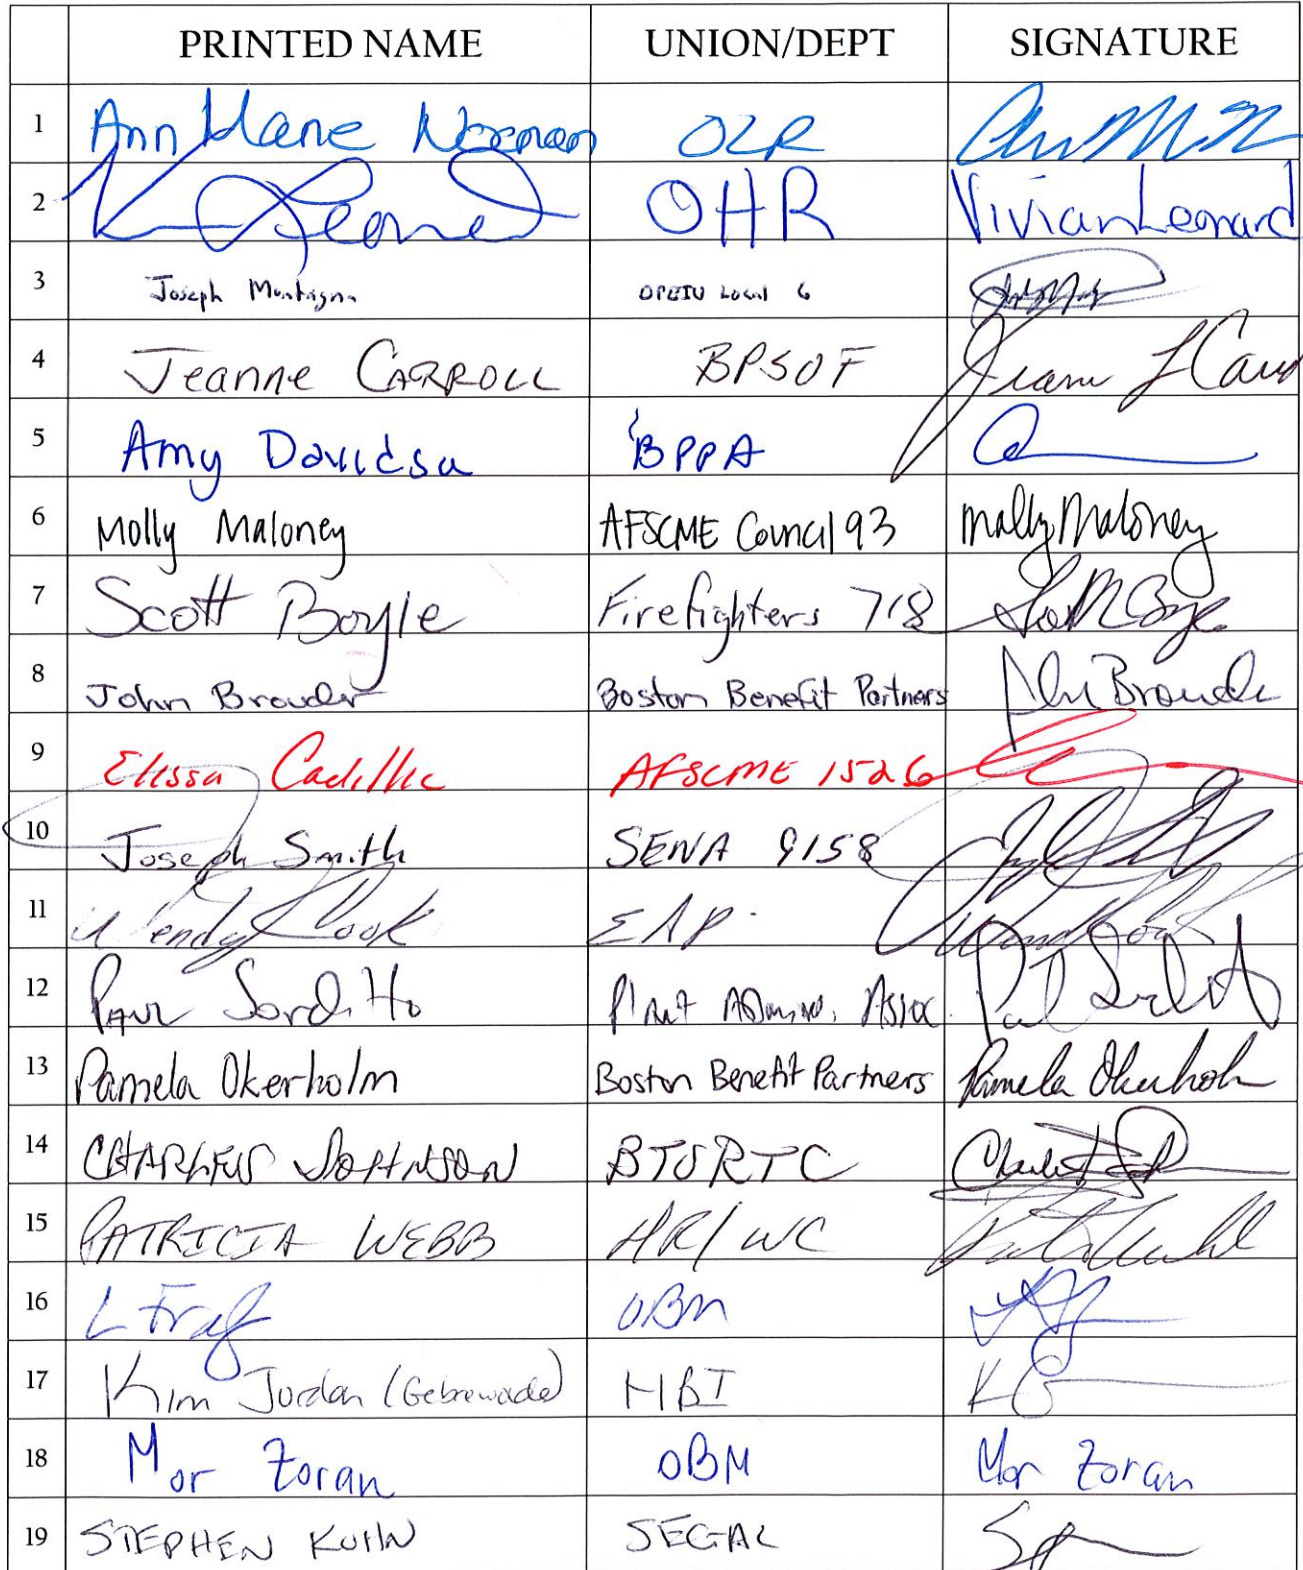 PRINTED NAME UNION/DEPT SIGNATURE
1 Ann Marie Noonan OLR
2 V Leonard OHR Vivian Leonard
3 Joseph Montagna OPEIU Local 6
4 Jeanne CARROLL BPSOF
5 Amy Davidson BPPA
6 Molly Maloney AFSCME Council 93 Molly Maloney
7 Scott Boyle Firefighters 718
8 John Browder Boston Benefit Partners
9 Elissa Cadillic AFSCME 1526
10 Joseph Smith SENA 9158
11 Wendy Look EAP.
12 PAUL Sorditto Plant Admin. Assoc
13 Pamela Okerholm Boston Benefit Partners Pamela Okerholm
14 CHARLES JOHNSON BTURTC
15 PATRICIA WEBB HR/WC
16 OBM
17 Kim Jordan (Gebrewade) HBI
18 Mor Zoran OBM Mor Zoran
19 STEPHEN KUHN SEGAL